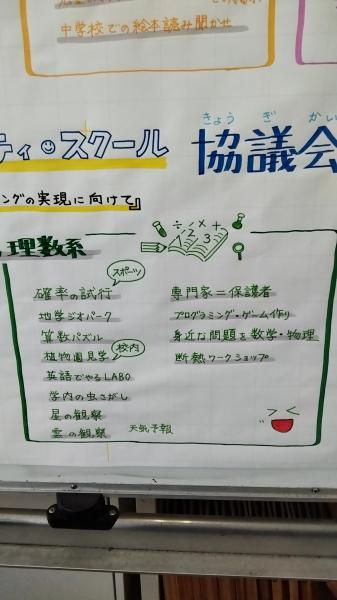 中学校での絵本読み聞かせ
ティ・スクール
きょう ぎ かい
協議会
ングの実現に向けて』
理数系
÷ 1 × +
1 2 3
スポーツ
確率の試行
地学ジオパーク
算数パズル
校内
植物園見学
英語でやるLABO
学内の虫さがし
星の観察
雲の観察 天気予報
専門家=保護者
プログラミング・ゲーム作り
身近な問題を数学・物理
断熱ワークショップ